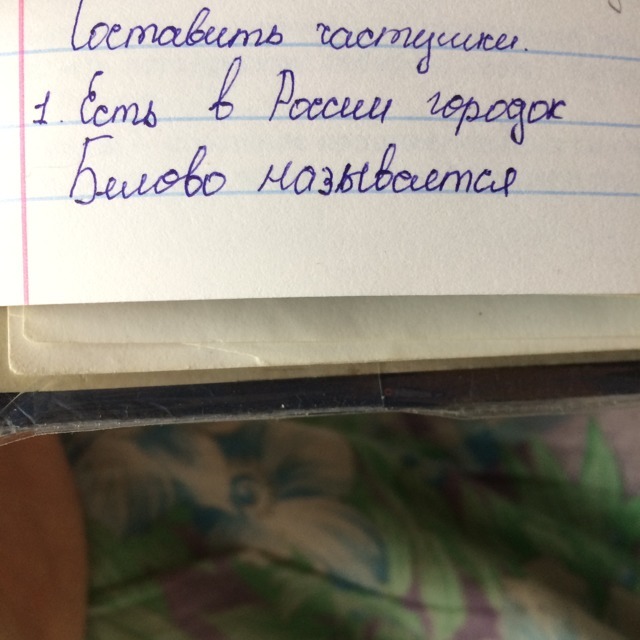 Составить частушки.
1. Есть в России городок
Белово называется